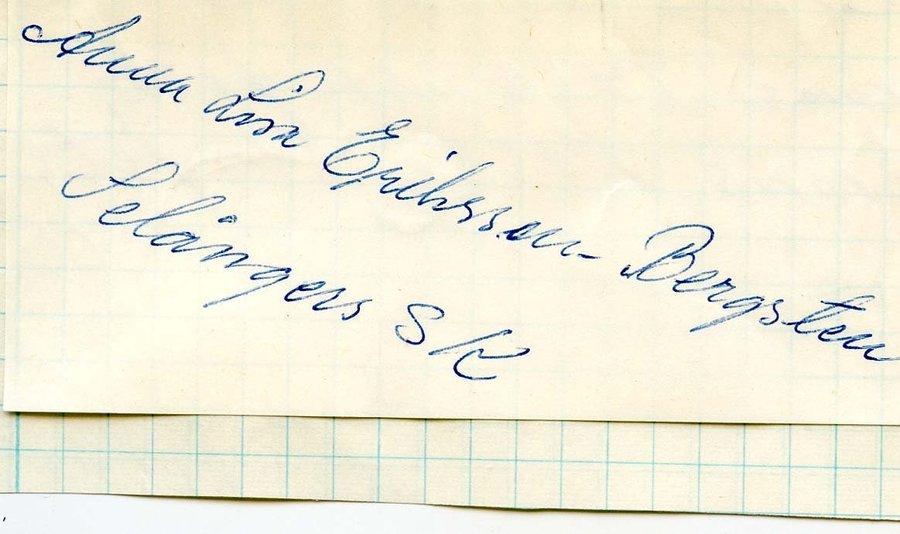 Anna Lisa Eriksson-Bergsten
Selångers SK